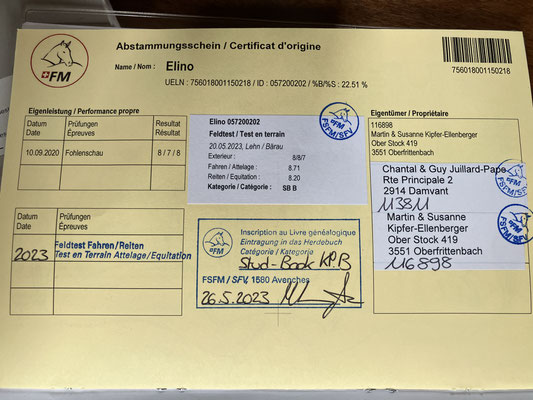 FM
Abstammungsschein / Certificat d'origine
Name / Nom : Elino
UELN : 756018001150218 / ID : 057200202 / %B/%S : 22.51 %
756018001150218
Eigenleistung / Performance propre
Datum Prüfungen Resultat
Date Épreuves Résultat
10.09.2020 Fohlenschau 8 / 7 / 8
Elino 057200202
Feldtest / Test en terrain
20.05.2023, Lehn / Bärau
Exterieur : 8/8/7
Fahren / Attelage : 8.71
Reiten / Equitation : 8.20
Kategorie / Catégorie : SB B
FM
FSFM/SFV
Eigentümer / Propriétaire
116898
Martin & Susanne Kipfer-Ellenberger
Ober Stock 419
3551 Oberfrittenbach
Chantal & Guy Juillard-Pape
Rte Principale 2
2914 Damvant
113811
Martin & Susanne
Kipfer-Ellenberger
Ober Stock 419
3551 Oberfrittenbach
116898
FM
FSFM/SFV
FM
FSFM/SFV
Datum Prüfungen
Date Épreuves
2023 Feldtest Fahren/Reiten
Test en Terrain Attelage/Equitation
FM
Inscription au Livre généalogique
Eintragung in das Herdebuch
Catégorie / Kategorie
Stud-Book Kp.B
FSFM / SFV, 1580 Avenches
26.5.2023